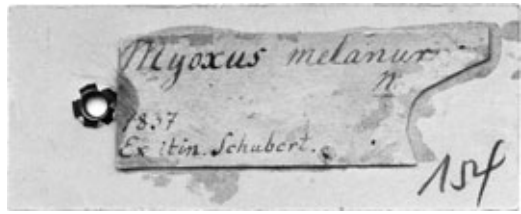 Myoxus melanur
n
1837
Ex itin. Schubert.
154